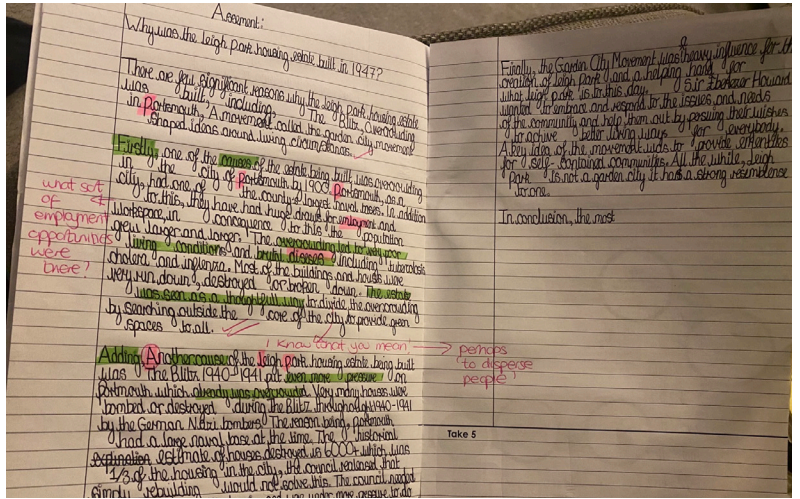 Assement:
Why was the leigh Park housing estate built in 1947?
There are few significant reasons why the leigh park housing estate
was built, including, The Blitz, Overcrowding
in Portsmouth, A movement called the garden city movement
shaped ideas around living circumstances.
Firstly, one of the causes of the estate being built was overcrowding
in the city of Portsmouth by 1909. Portsmouth, as a
city, had one of the county's largest naval bases. In addition
to this, they have had huge draws for emloyment and
workspace, in concequence to this the population
grew larger and larger. The overcrowding led to very poor
living conditions and brutal diseases including tuberculosis
cholera and influenza. Most of the buildings and houses were
very run down, destroyed or broken down. The estate
was seen as a thoughtfull way to divide the overcrowding
by searching outside the core of the city to provide green
spaces to all.
what sort
of
employment
opportunities
were
there?
I know what you mean
perhaps
to disperse
people?
Adding, Another cause of the leigh park housing estate being built
was the Blitz 1940-1941 put even more pressure on
Portmouth which already was overcrowded. Very many houses were
bombed or destroyed during the Blitz throughout 1940-1941
by the German Nazi bombers. The reason being, portsmouth
had a large naval base at the time. The historial
estimate of houses destroyed is 6000+ which was
1/3 of the housing in the city, the council realised that
simply rebuilding would not solve this. The council needed
was under more pressure to do
Finally, the Garden City Movement was a heavy influence for the
creation of leigh Park and a helping hand for
what leigh park is to this day. Sir Ebenezer Howard
wanted to embrace and respond to the issues and needs
of the community and help them out by persuing their wishes
to achieve better living ways for everybody.
A key idea of the movement was to provide amenities
for self-contained communities. All the while, leigh
Park is not a garden city it has a strong resemblense
to one.
In conclusion, the most
Take 5